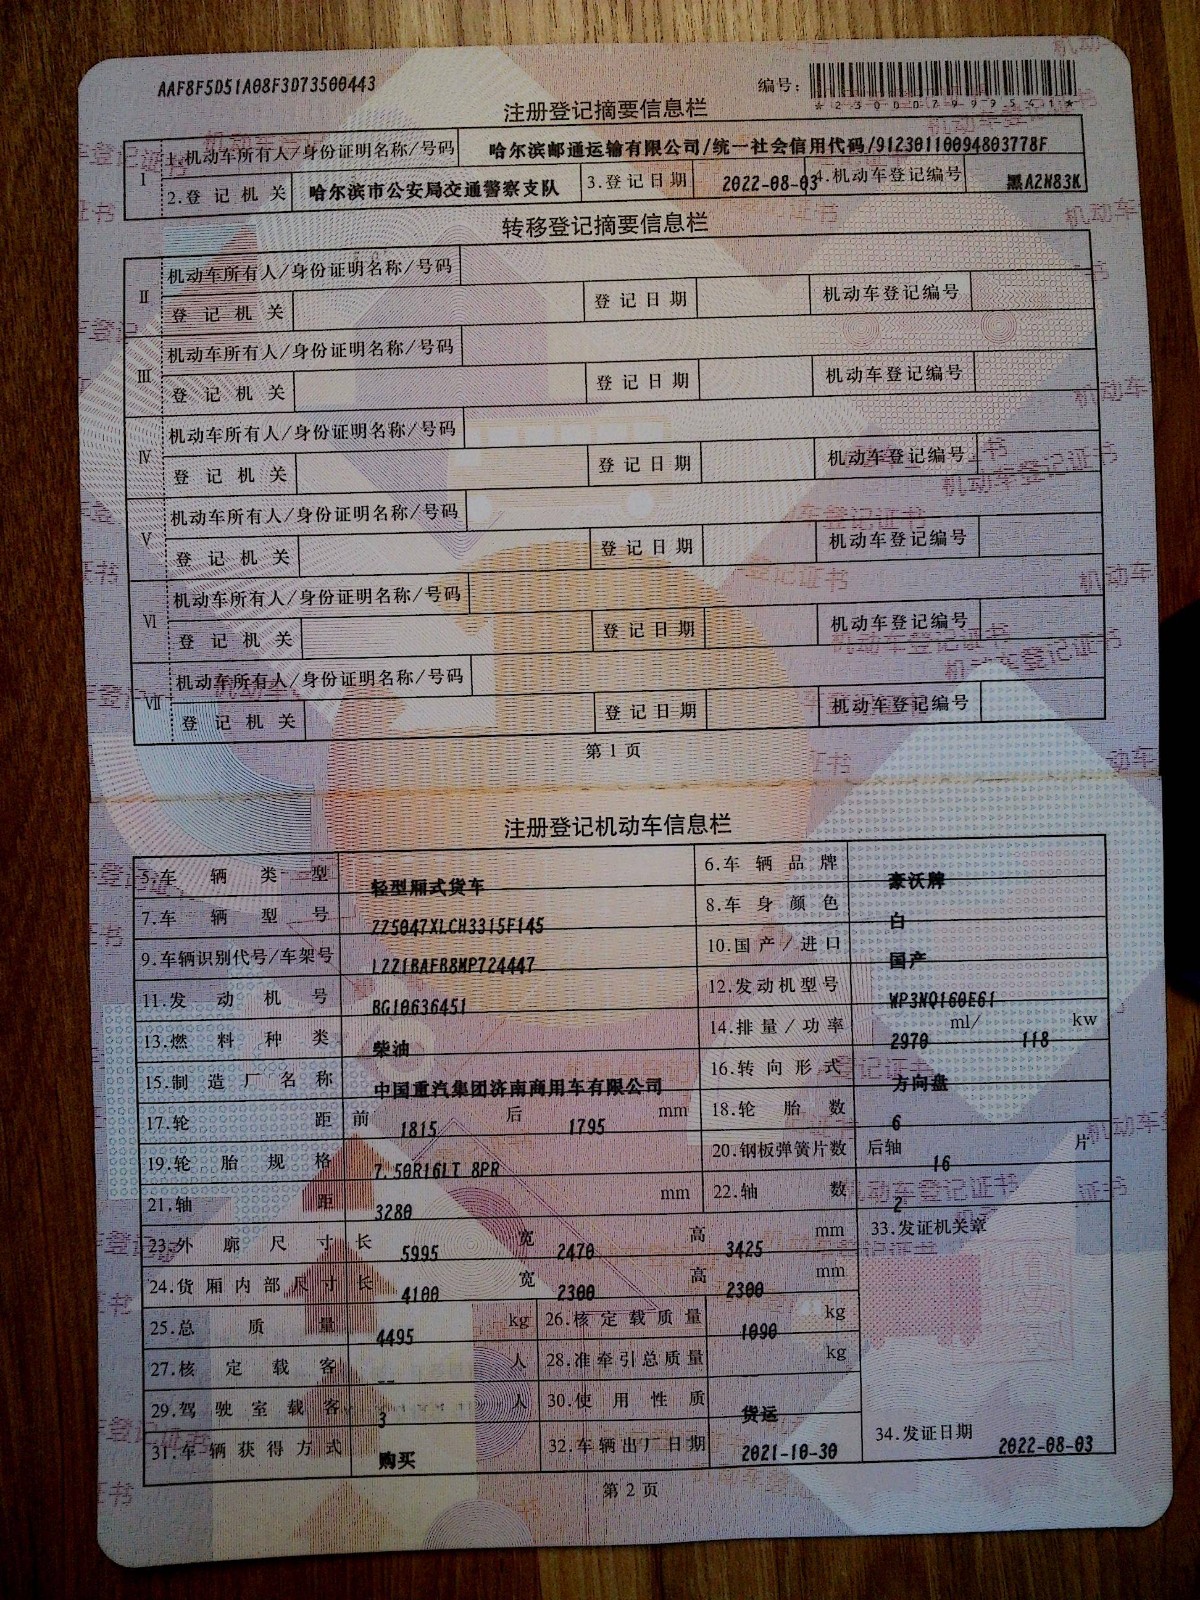 AAF8F5D51A08F3D73500443
编号：
*230007999541*
注册登记摘要信息栏
Ⅰ 1.机动车所有人/身份证明名称/号码 哈尔滨邮通运输有限公司/统一社会信用代码/91230110094803778F
2.登记机关 哈尔滨市公安局交通警察支队 3.登记日期 2022-08-03 4.机动车登记编号 黑A2N83K
转移登记摘要信息栏
Ⅱ 机动车所有人/身份证明名称/号码
登记机关 登记日期 机动车登记编号
Ⅲ 机动车所有人/身份证明名称/号码
登记机关 登记日期 机动车登记编号
Ⅳ 机动车所有人/身份证明名称/号码
登记机关 登记日期 机动车登记编号
Ⅴ 机动车所有人/身份证明名称/号码
登记机关 登记日期 机动车登记编号
Ⅵ 机动车所有人/身份证明名称/号码
登记机关 登记日期 机动车登记编号
Ⅶ 机动车所有人/身份证明名称/号码
登记机关 登记日期 机动车登记编号
第 1 页
注册登记机动车信息栏
5.车辆类型 轻型厢式货车 6.车辆品牌 豪沃牌
7.车辆型号 ZZ5047XLCH3315F145 8.车身颜色 白
9.车辆识别代号/车架号 LZZ1BAFB8MP724447 10.国产/进口 国产
11.发动机号 BG10636451 12.发动机型号 WP3NQ160E61
13.燃料种类 柴油 14.排量/功率 2970 ml/ 118 kw
15.制造厂名称 中国重汽集团济南商用车有限公司 16.转向形式 方向盘
17.轮距 前 1815 后 1795 mm 18.轮胎数 6
19.轮胎规格 7.50R16LT 8PR 20.钢板弹簧片数 后轴 16 片
21.轴距 3280 mm 22.轴数 2
23.外廓尺寸 长 5995 宽 2470 高 3425 mm 33.发证机关章
24.货厢内部尺寸 长 4100 宽 2300 高 2300 mm
25.总质量 4495 kg 26.核定载质量 1090 kg
27.核定载客 -- 人 28.准牵引总质量 -- kg
29.驾驶室载客 3 人 30.使用性质 货运
31.车辆获得方式 购买 32.车辆出厂日期 2021-10-30 34.发证日期 2022-08-03
第 2 页